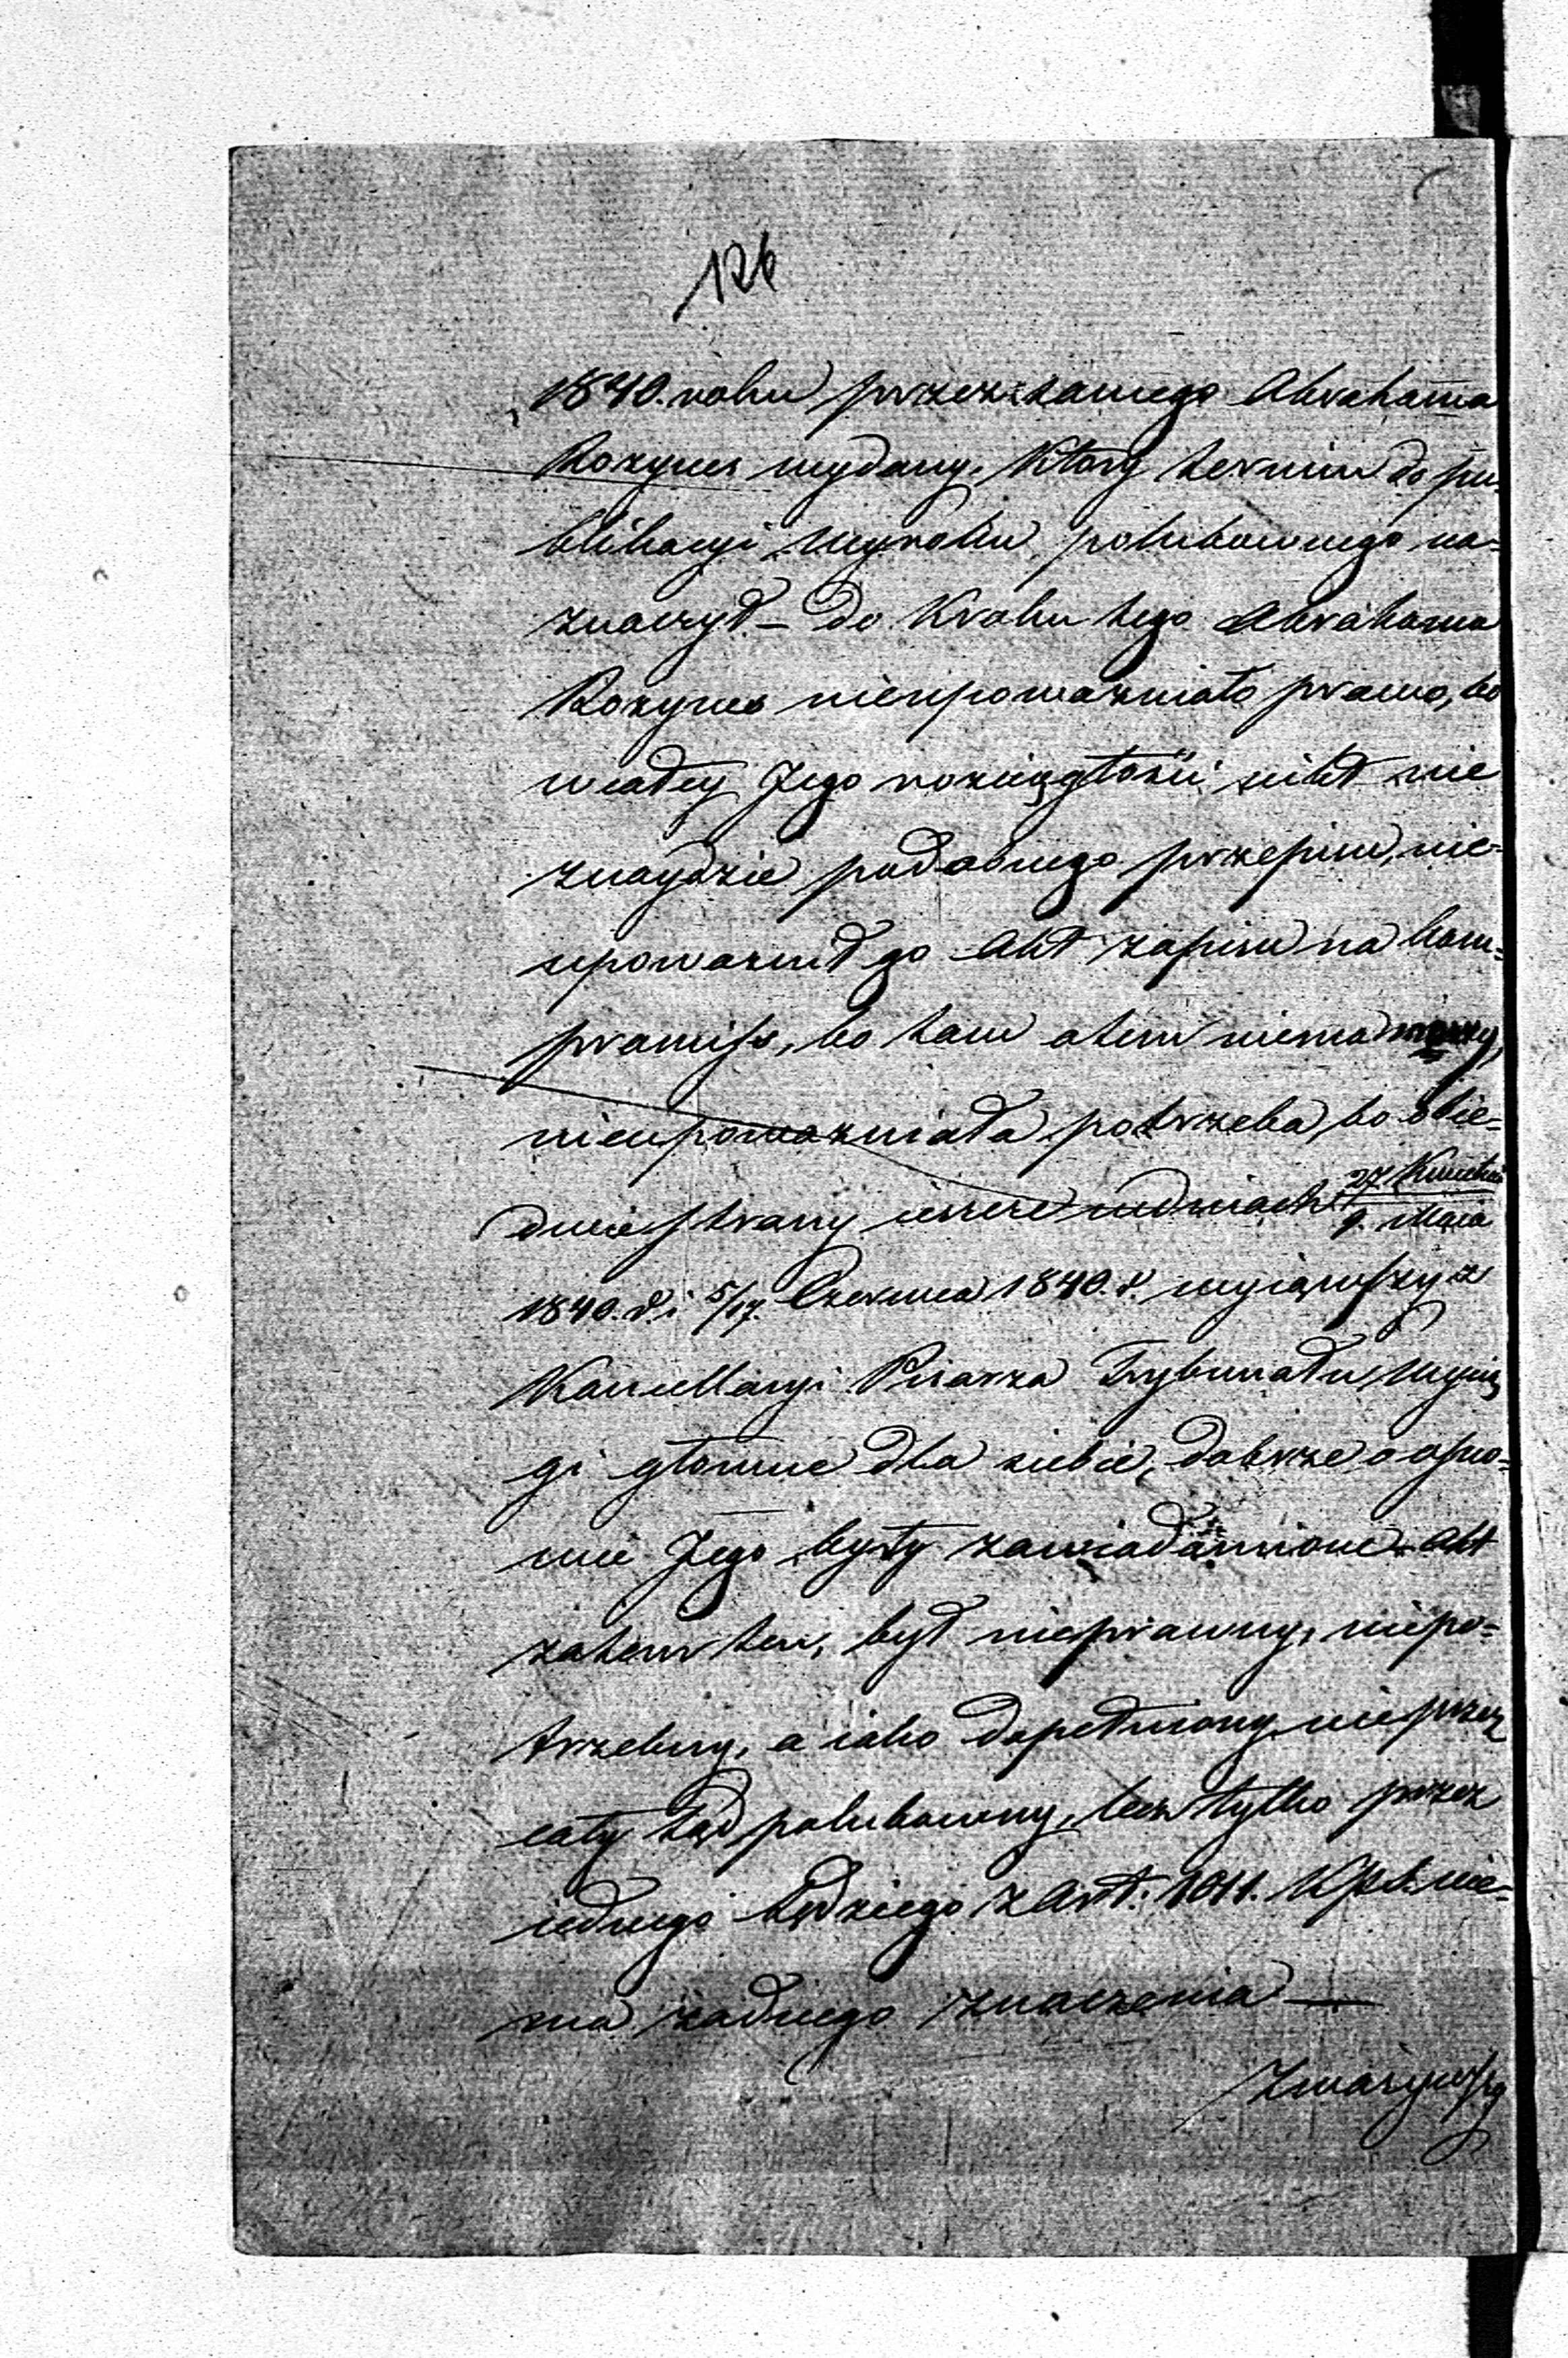 126
1840. roku przez samego Abrahama
Rozynes wydany. Ktory termin do pu-
blikacyi wyroku polubownego na-
znaczył – Do Kroku tego Abrahama
Rozynes nieupoważniało prawo, bo
w całey Jego rozciągłosci nikt nie
znaydzie podobnego przepisu, nie-
upowaznił go Akt zapisu na kom-
promiss, bo tam otem niema mowy,
nieupoważniała potrzeba, bo obie-
dwie strony ieszcze w dniach 27 Kwietnia
9. Maja
1840. r. i 5/17. Czerwca 1840. r. wyiąwszy z
Kancellaryi Pisarza Trybunału Wycią
gi główne dla siebie, dobrze o osno-
wie Jego były zawiadomione. Akt
zatem ten, był nieprawny, niepo-
trzebny, a iako dopełniony nie przez
cały Sąd polubowny, lecz tylko przez
iednego Sędziego z Art: 1011. K.p.S. nie-
ma żadnego znaczenia —
Zważywszy